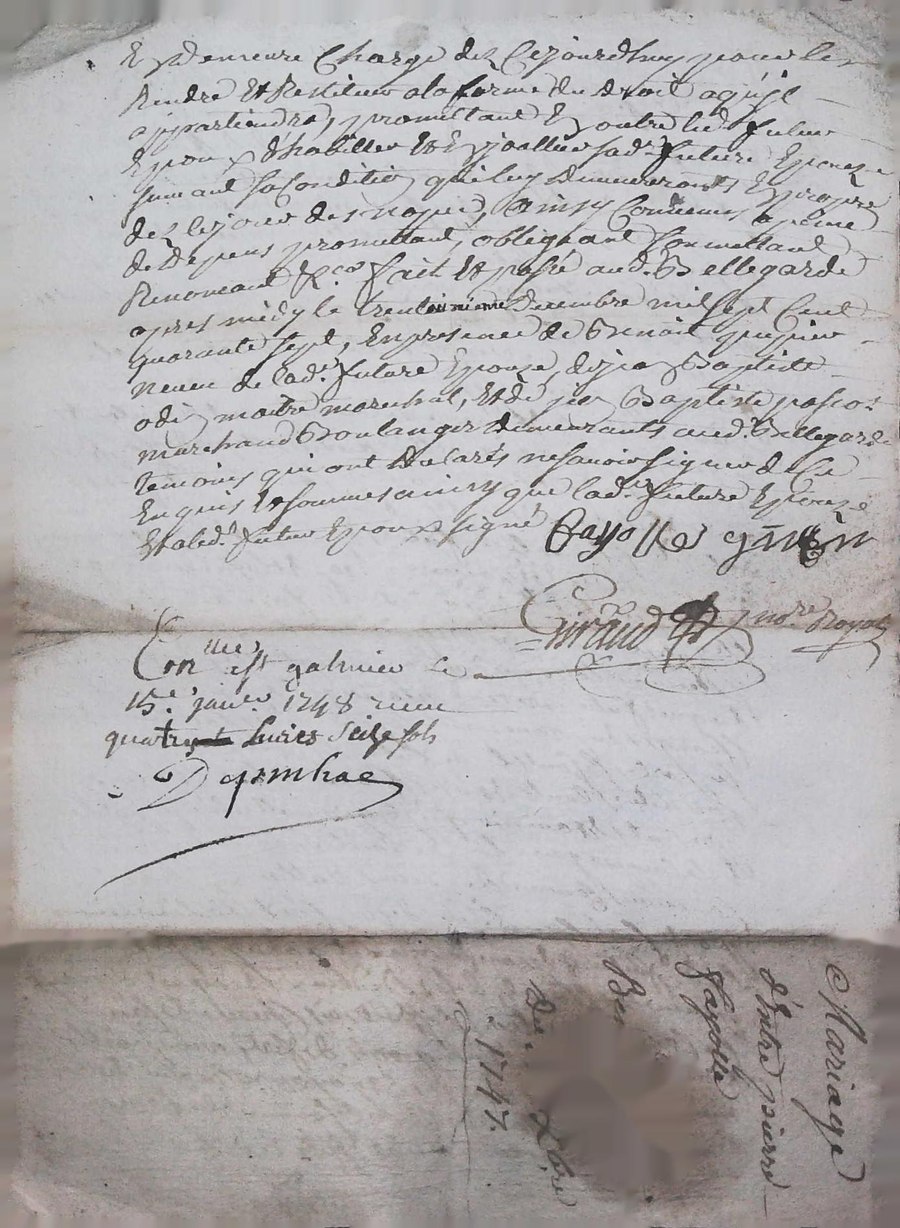 Et demeure Chargé des Cejourdhuy pour les
Rendre Et Restituer a la forme du droit a qu'jl
appartiendra, promettant En outre led. futur
Epoux d'habiller Et Enjoaller lad. future Epouze
suivant sa Condition qui luy demeureront Propre
des le jour des nopces, ainsy Convenus a peine
de depens promettant, obligeant soumettant
Renonceant &ca. fait Et passé aud. Bellegarde
apres midy le trente unieme decembre mil sept Cent
quarante sept, En presence de Benoit
neveu de lad. future Epouse, de jea Baptiste
odi maitre marechal, Et de jea Baptiste
marchand Boulanger demeurants aud. Bellegarde
temoins qui ont declarés ne savoir signer de Ce
Enquis Et sommes ainsy que lad. future Epouze
Et a led. futur Epoux signé fayolle
Guiraud nore. Royal
Conllé. a st galmier le
15e. janvr. 1748 receu
quatre livres seize sols
Mariage
d'Entre pierre
fayolle
Be
Du Xbre
1747.